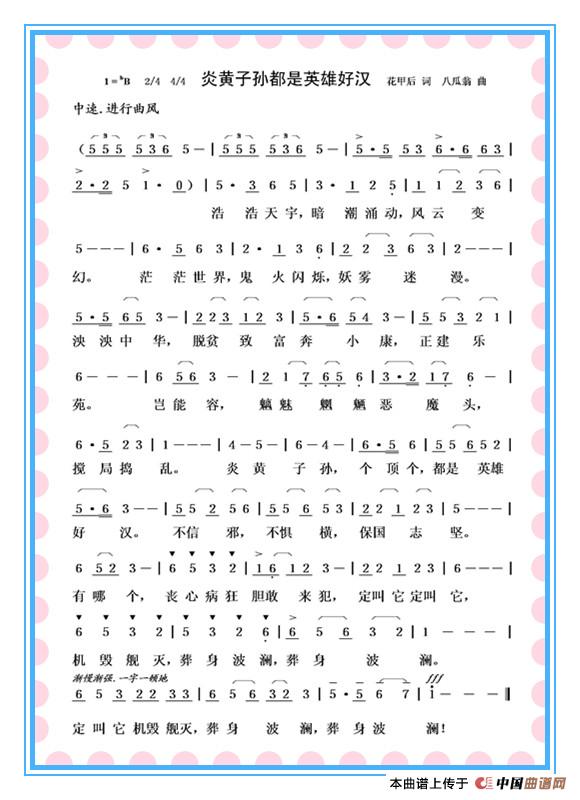 1=♭B 2/4 4/4 炎黄子孙都是英雄好汉 花甲后 词 八瓜翁 曲
中速.进行曲风
(555 536 5-|555 536 5-|5·5 53 6·6 63|
2·2 5 1·0)|5·3 6 5|3·1 2 5|1 1 2 3 6|
浩 浩天宇,暗 潮涌动,风云 变
5---|6·5 6 3|2·1 3 6|2 2 3 6 3|2---|
幻。 茫 茫世界,鬼 火闪烁,妖雾 迷 漫。
5·5 65 3-|223 12 3-|5·6 54 3-|55 32 1-|
泱泱中 华,脱贫 致 富奔 小 康,正建 乐
6---|6 56 3-|2 1 7 6 5|3·2 17 6-|
苑。 岂能 容, 魑魅 魍 魉恶 魔头,
6·5 23|1---|4-5-|6-4-|6·5 6|55 652|
搅 局捣 乱。 炎 黄 子 孙, 个 顶个,都是 英雄
5·6 3--|55 2 56|56 53 2-|22 123-|
好 汉。 不信 邪,不惧 横,保国 志 坚。
6 52 3-|6 5 3 2|16 12 3-|22 3 11 6|
有哪 个, 丧心病狂 胆敢 来犯, 定叫它定叫 它,
6 5 3 2|5 3 2 6|6 5 6 3|2---|
机 毁 舰 灭,葬 身 波 澜,葬 身 波 澜。
渐慢渐强.一字一顿地 fff
6 5 3 22 33|6 63 2 3|5·5 6 7|1--‖
定 叫 它机毁舰灭,葬 身 波 澜,葬身 波 澜!
本曲谱上传于 中国曲谱网